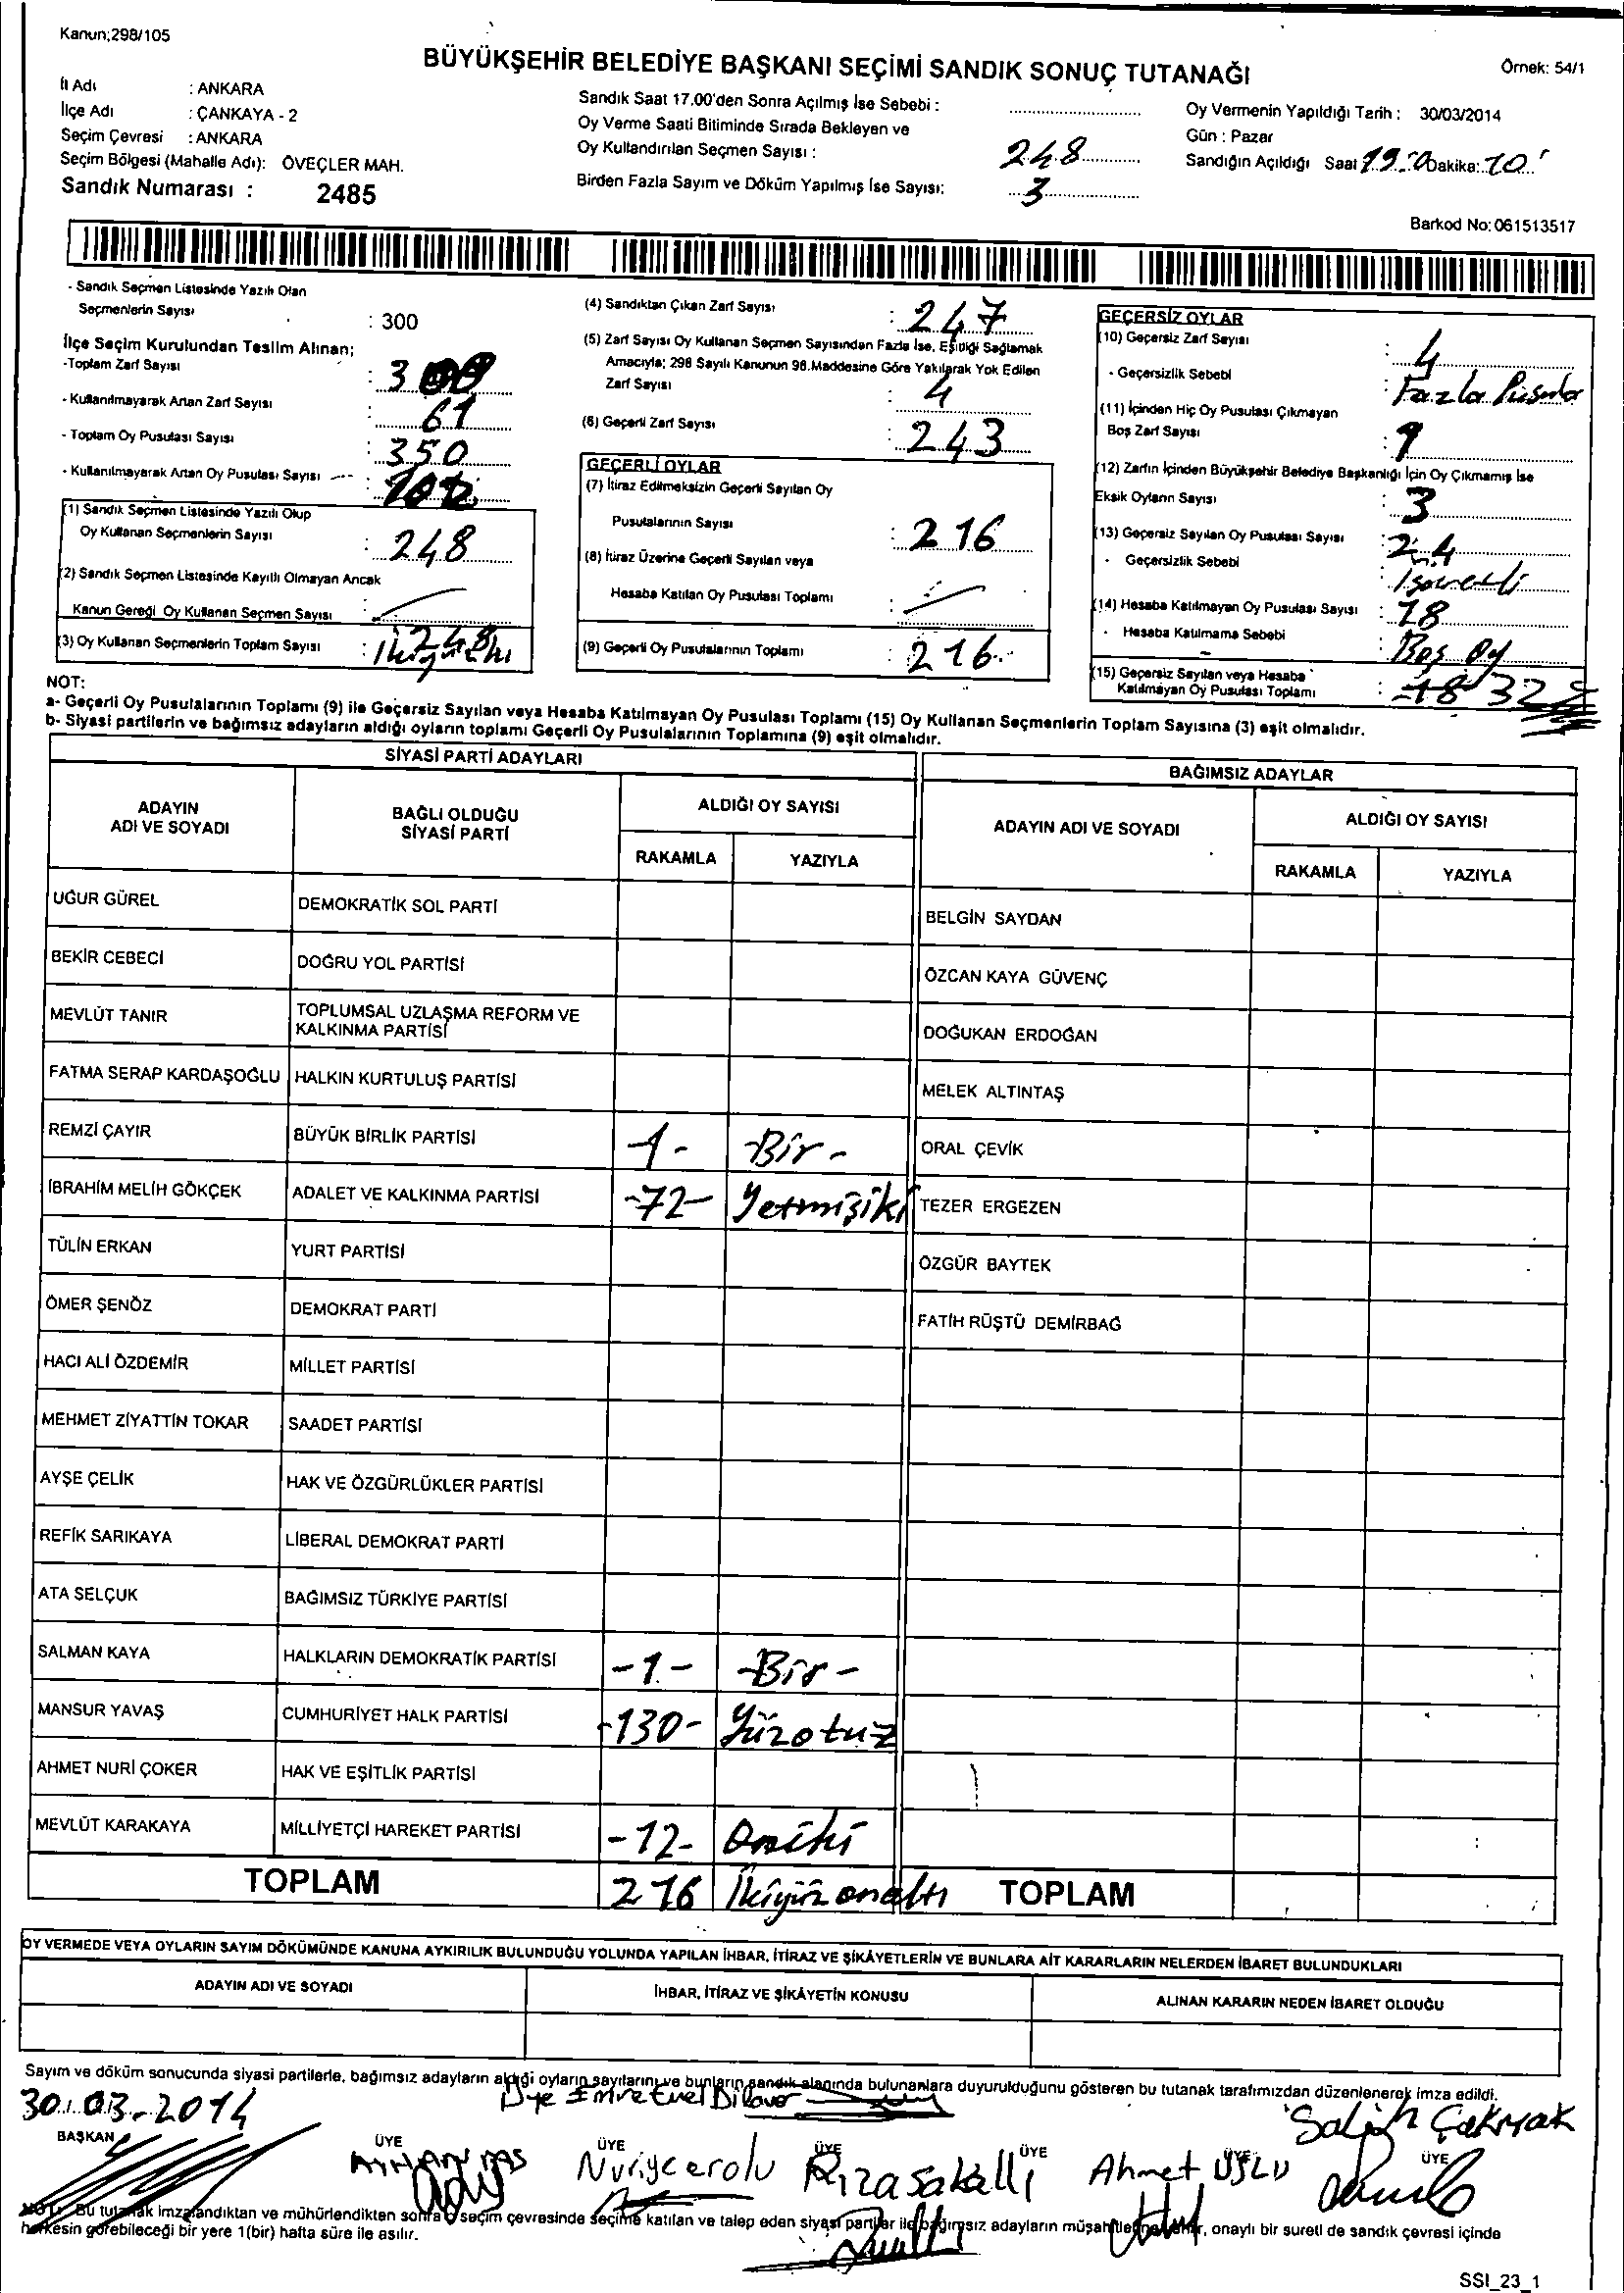 Kanun;298/105
BÜYÜKŞEHİR BELEDİYE BAŞKANI SEÇİMİ SANDIK SONUÇ TUTANAĞI
Örnek: 54/1
İl Adı : ANKARA
İlçe Adı : ÇANKAYA - 2
Seçim Çevresi : ANKARA
Seçim Bölgesi (Mahalle Adı): ÖVEÇLER MAH.
Sandık Numarası : 2485
Sandık Saat 17.00'den Sonra Açılmış İse Sebebi :
Oy Verme Saati Bitiminde Sırada Bekleyen ve
Oy Kullandırılan Seçmen Sayısı : 248
Birden Fazla Sayım ve Döküm Yapılmış İse Sayısı: 3
Oy Vermenin Yapıldığı Tarih : 30/03/2014
Gün : Pazar
Sandığın Açıldığı Saat Dakika: 10
Barkod No: 061513517
- Sandık Seçmen Listesinde Yazılı Olan
Seçmenlerin Sayısı : 300
İlçe Seçim Kurulundan Teslim Alınan;
-Toplam Zarf Sayısı :
- Kullanılmayarak Artan Zarf Sayısı : 61
- Toplam Oy Pusulası Sayısı : 350
- Kullanılmayarak Artan Oy Pusulası Sayısı :
(1) Sandık Seçmen Listesinde Yazılı Olup
Oy Kullanan Seçmenlerin Sayısı : 248
(2) Sandık Seçmen Listesinde Kayıtlı Olmayan Ancak
Kanun Gereği Oy Kullanan Seçmen Sayısı :
(3) Oy Kullanan Seçmenlerin Toplam Sayısı : 248
(4) Sandıktan Çıkan Zarf Sayısı : 247
(5) Zarf Sayısı Oy Kullanan Seçmen Sayısından Fazla İse, Eşitliği Sağlamak
Amacıyla; 298 Sayılı Kanunun 98.Maddesine Göre Yakılarak Yok Edilen
Zarf Sayısı : 4
(6) Geçerli Zarf Sayısı : 243
GEÇERLİ OYLAR
(7) İtiraz Edilmeksizin Geçerli Sayılan Oy
Pusulalarının Sayısı : 216
(8) İtiraz Üzerine Geçerli Sayılan veya
Hesaba Katılan Oy Pusulası Toplamı :
(9) Geçerli Oy Pusulalarının Toplamı : 216
GEÇERSİZ OYLAR
(10) Geçersiz Zarf Sayısı : 4
- Geçersizlik Sebebi : Fazla Pusula
(11) İçinden Hiç Oy Pusulası Çıkmayan
Boş Zarf Sayısı : 1
(12) Zarfın İçinden Büyükşehir Belediye Başkanlığı İçin Oy Çıkmamış İse
Eksik Oyların Sayısı : 3
(13) Geçersiz Sayılan Oy Pusulası Sayısı : 24
- Geçersizlik Sebebi : İşaretli
(14) Hesaba Katılmayan Oy Pusulası Sayısı : 18
- Hesaba Katılmama Sebebi : Boş oy
(15) Geçersiz Sayılan veya Hesaba
Katılmayan Oy Pusulası Toplamı : 18 32
NOT:
a- Geçerli Oy Pusulalarının Toplamı (9) ile Geçersiz Sayılan veya Hesaba Katılmayan Oy Pusulası Toplamı (15) Oy Kullanan Seçmenlerin Toplam Sayısına (3) eşit olmalıdır.
b- Siyasi partilerin ve bağımsız adayların aldığı oyların toplamı Geçerli Oy Pusulalarının Toplamına (9) eşit olmalıdır.
SİYASİ PARTİ ADAYLARI BAĞIMSIZ ADAYLAR
ADAYIN ADI VE SOYADI BAĞLI OLDUĞU SİYASİ PARTİ ALDIĞI OY SAYISI ADAYIN ADI VE SOYADI ALDIĞI OY SAYISI
RAKAMLA YAZIYLA RAKAMLA YAZIYLA
UĞUR GÜREL DEMOKRATİK SOL PARTİ BELGİN SAYDAN
BEKİR CEBECİ DOĞRU YOL PARTİSİ ÖZCAN KAYA GÜVENÇ
MEVLÜT TANIR TOPLUMSAL UZLAŞMA REFORM VE KALKINMA PARTİSİ DOĞUKAN ERDOĞAN
FATMA SERAP KARDAŞOĞLU HALKIN KURTULUŞ PARTİSİ MELEK ALTINTAŞ
REMZİ ÇAYIR BÜYÜK BİRLİK PARTİSİ -1- -Bir- ORAL ÇEVİK
İBRAHİM MELİH GÖKÇEK ADALET VE KALKINMA PARTİSİ -72- Yetmişiki TEZER ERGEZEN
TÜLİN ERKAN YURT PARTİSİ ÖZGÜR BAYTEK
ÖMER ŞENÖZ DEMOKRAT PARTİ FATİH RÜŞTÜ DEMİRBAĞ
HACI ALİ ÖZDEMİR MİLLET PARTİSİ
MEHMET ZİYATTİN TOKAR SAADET PARTİSİ
AYŞE ÇELİK HAK VE ÖZGÜRLÜKLER PARTİSİ
REFİK SARIKAYA LİBERAL DEMOKRAT PARTİ
ATA SELÇUK BAĞIMSIZ TÜRKİYE PARTİSİ
SALMAN KAYA HALKLARIN DEMOKRATİK PARTİSİ -1- -Bir-
MANSUR YAVAŞ CUMHURİYET HALK PARTİSİ -130- Yüzotuz
AHMET NURİ ÇOKER HAK VE EŞİTLİK PARTİSİ
MEVLÜT KARAKAYA MİLLİYETÇİ HAREKET PARTİSİ -12- Oniki
TOPLAM 216 İkiyüzonaltı TOPLAM
OY VERMEDE VEYA OYLARIN SAYIM DÖKÜMÜNDE KANUNA AYKIRILIK BULUNDUĞU YOLUNDA YAPILAN İHBAR, İTİRAZ VE ŞİKÂYETLERİN VE BUNLARA AİT KARARLARIN NELERDEN İBARET BULUNDUKLARI
ADAYIN ADI VE SOYADI İHBAR, İTİRAZ VE ŞİKÂYETİN KONUSU ALINAN KARARIN NEDEN İBARET OLDUĞU
Sayım ve döküm sonucunda siyasi partilerle, bağımsız adayların aldığı oyların sayılarını ve bunların sandık alanında bulunanlara duyurulduğunu gösteren bu tutanak tarafımızdan düzenlenerek imza edildi.
30.03.2014 Üye Emre Dilaver
Salih Çakmak
BAŞKAN ÜYE ÜYE ÜYE ÜYE ÜYE ÜYE
Rıza Sakallı Ahmet
NOT: Bu tutanak imzalandıktan ve mühürlendikten sonra seçim çevresinde seçime katılan ve talep eden siyasi partiler ile bağımsız adayların müşahitlerine verilir, onaylı bir sureti de sandık çevresi içinde
herkesin görebileceği bir yere 1(bir) hafta süre ile asılır.
SSI_23_1